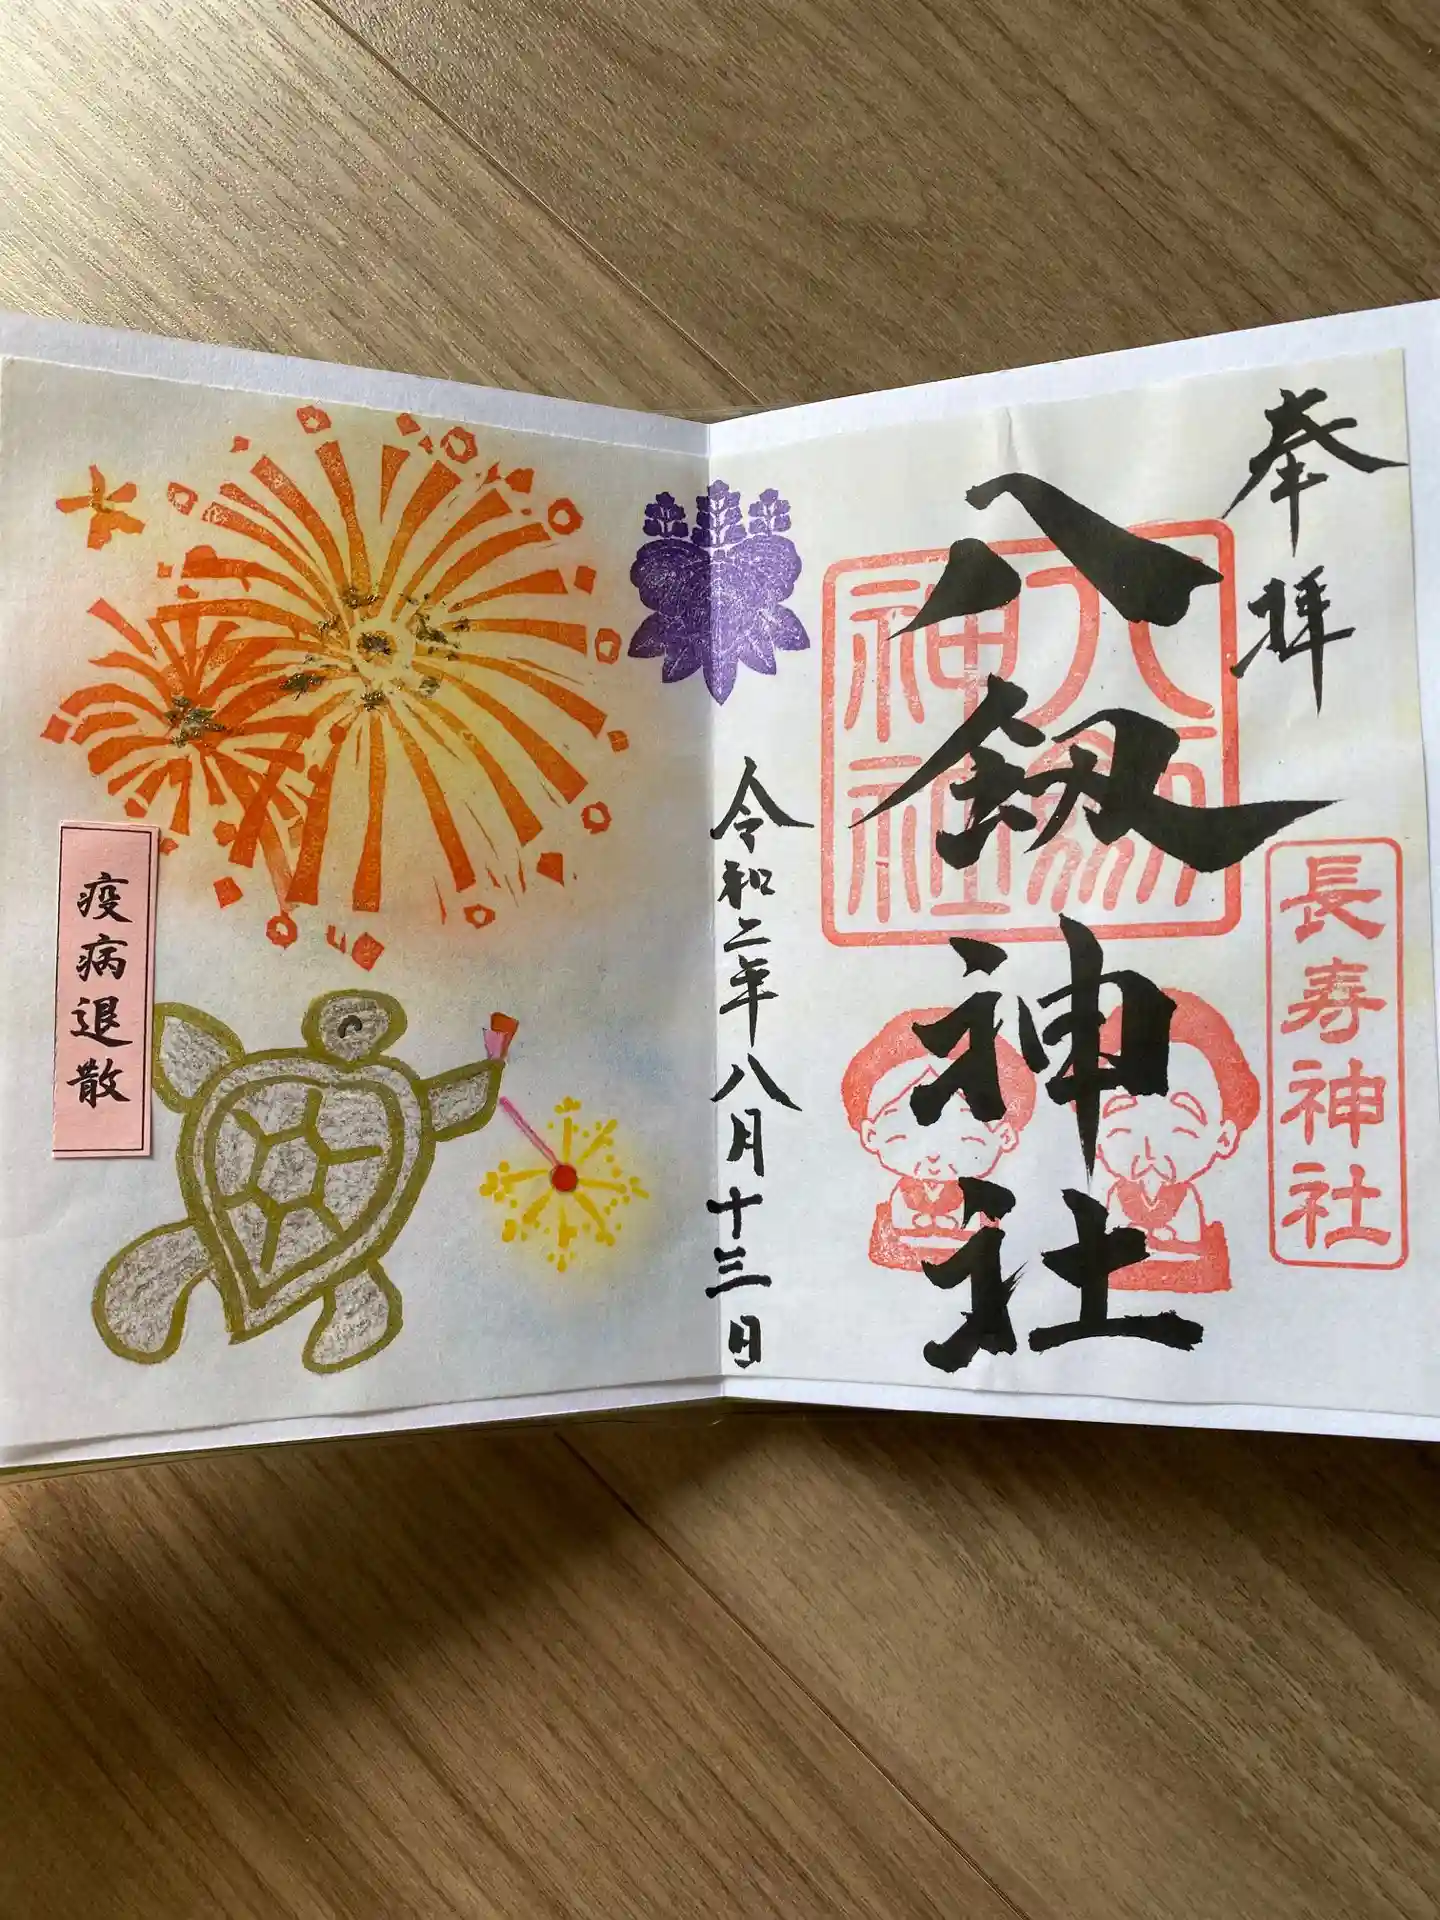 奉拝
八剱神社
八劔神社
長寿神社
令和二年八月十三日
疫病退散